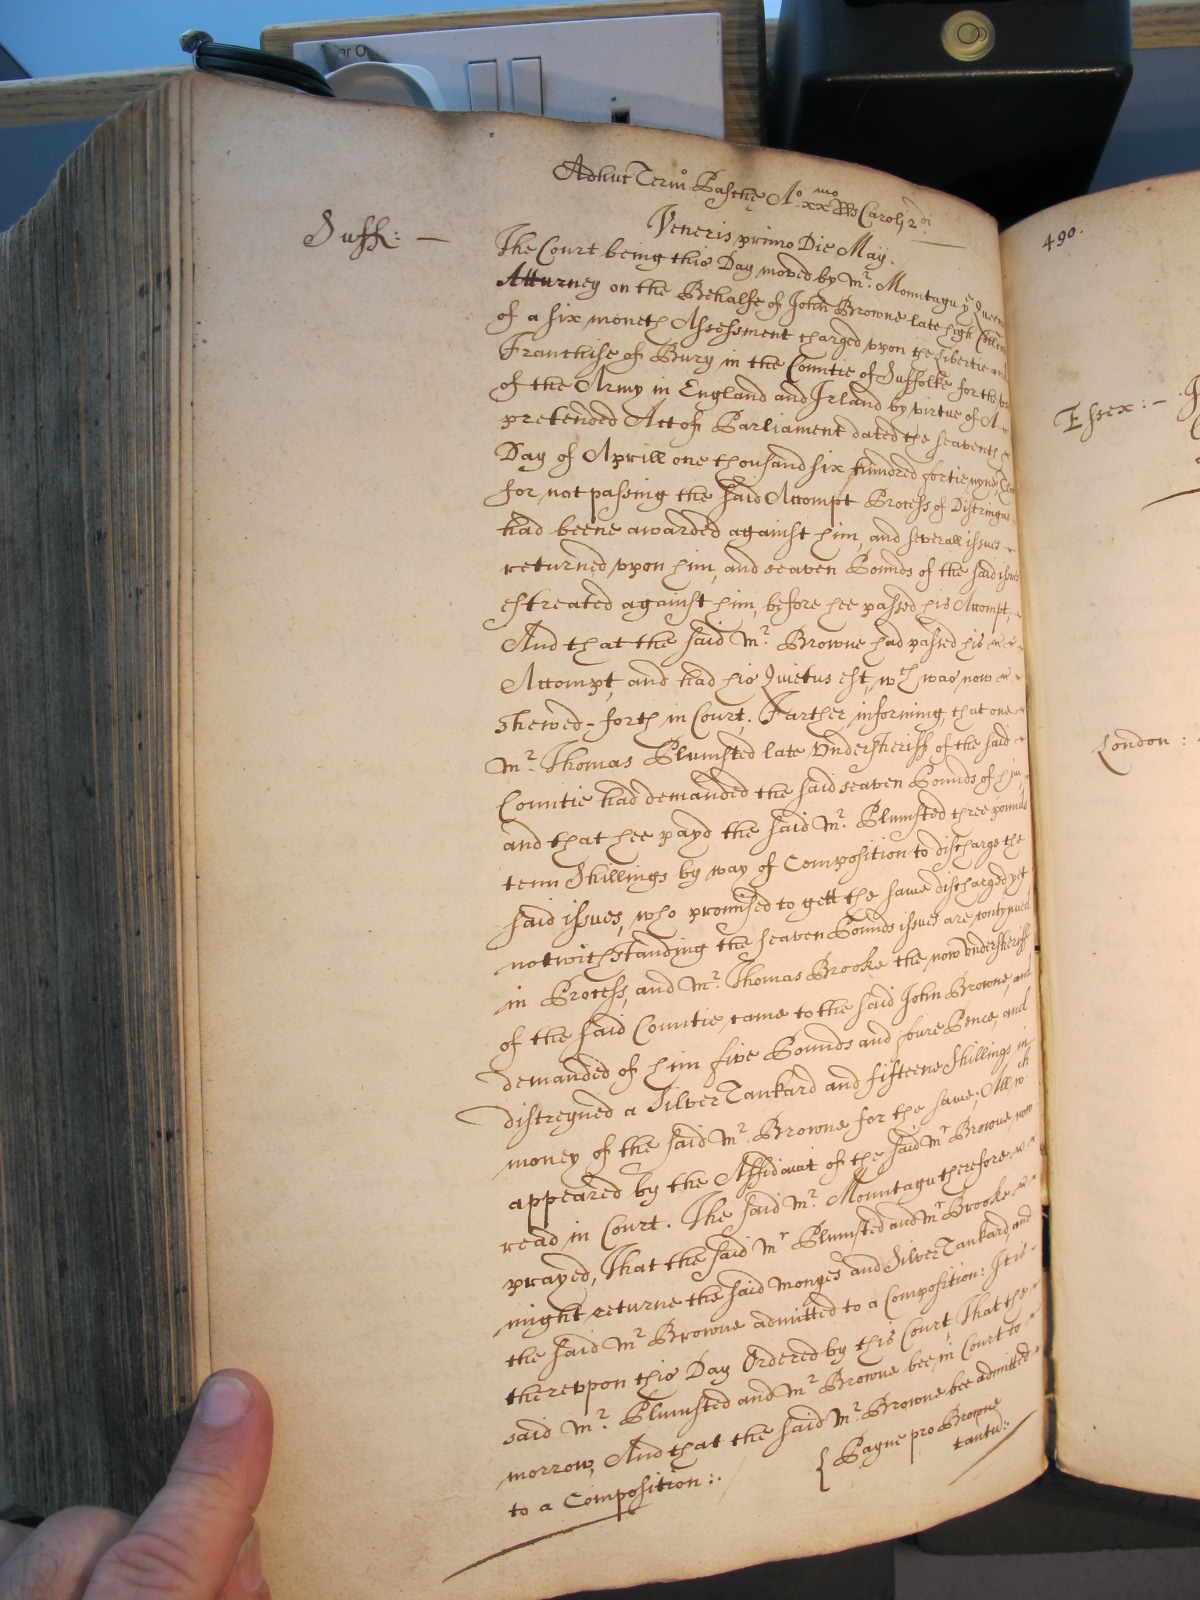 Adhuc Term Pasche Ao xxmo RRs Caroli 2di
Veneris primo Die May.
Suff: —
The Court being this Day moved by Mr. Mountagu ye Queens
Atturney on the Behalfe of John Browne late high
of a six moneth Assessment charged vpon the Libertie and
Franchise of Bury in the Countie of Suffolke for the
of the Army in England and Irland by virtue of A
pretended Act of Parliament dated the seaventh
Day of Aprill one thousand six hundred fortie nyne,
for not passing the said Accompt Process of Distringas
had beene awarded against him, and severall issues
returned vpon him, and seaven Pounds of the said issues
estreated against him, before hee passed his Accompt,
And that the said Mr. Browne had passed his
Accompt, and had his Quietus est, wch was now
shewed-forth in Court. Farther informing, that one
Mr. Thomas Plumsted late Vndersheriff of the said
Countie had demanded the said seaven Pounds of him
and that hee payd the said Mr. Plumsted three pounds
tenn Shillings by way of Composition to discharge the
said issues, who promised to gett the same discharged yet
notwithstanding the seaven Pounds issues are contynued
in Process, and Mr. Thomas Brooke the now Vndersheriff
of the said Countie, came to the said John Browne, and
demanded of him five Pounds and foure Pence, and
distreyned a Silver Tankard and fifteene Shillings in
money of the said Mr. Browne for the same; All wch
appeared by the Affidavit of the said Mr Browne, now
read in Court. The said Mr. Mountagu therefore
prayed, That the said Mr Plumsted and Mr Brooke
might returne the said monyes and Silver Tankard, and
the said Mr Browne admitted to a Composition: It is
therevpon this Day Ordered by this Court That the
said Mr. Plumsted and Mr Browne bee in Court to
morrow, And that the said Mr. Browne bee admitted
to a Composition:.
{ Payne pro Browne
tantu:
490.
Essex: —
London :